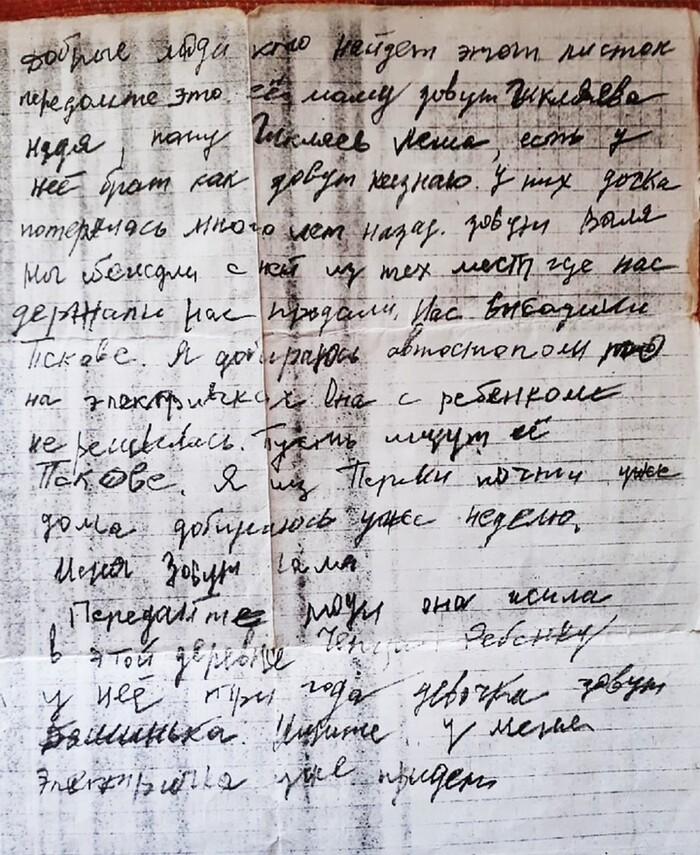 Добрые люди кто найдет этот листок
передайте это. её маму зовут Шкляева
надя, папу Шкляев Леша, есть у
неё брат как зовут незнаю. У них дочка
потерялась много лет назад. зовут Валя
мы бежали с ней из тех мест где нас
держали нас продали. Нас высадили
Пскове. Я добираюсь автостопом то
на электричках Она с ребенкоме
не решилась. Пусть ищут её
Пскове. Я из Перми почти уже
дома добираюсь уже неделю.
Меня Зовут
Передайте люди она жила
в этой деревне Ребёнку
у неё три года девочка зовут
Ищите у меня
электричка уже придет